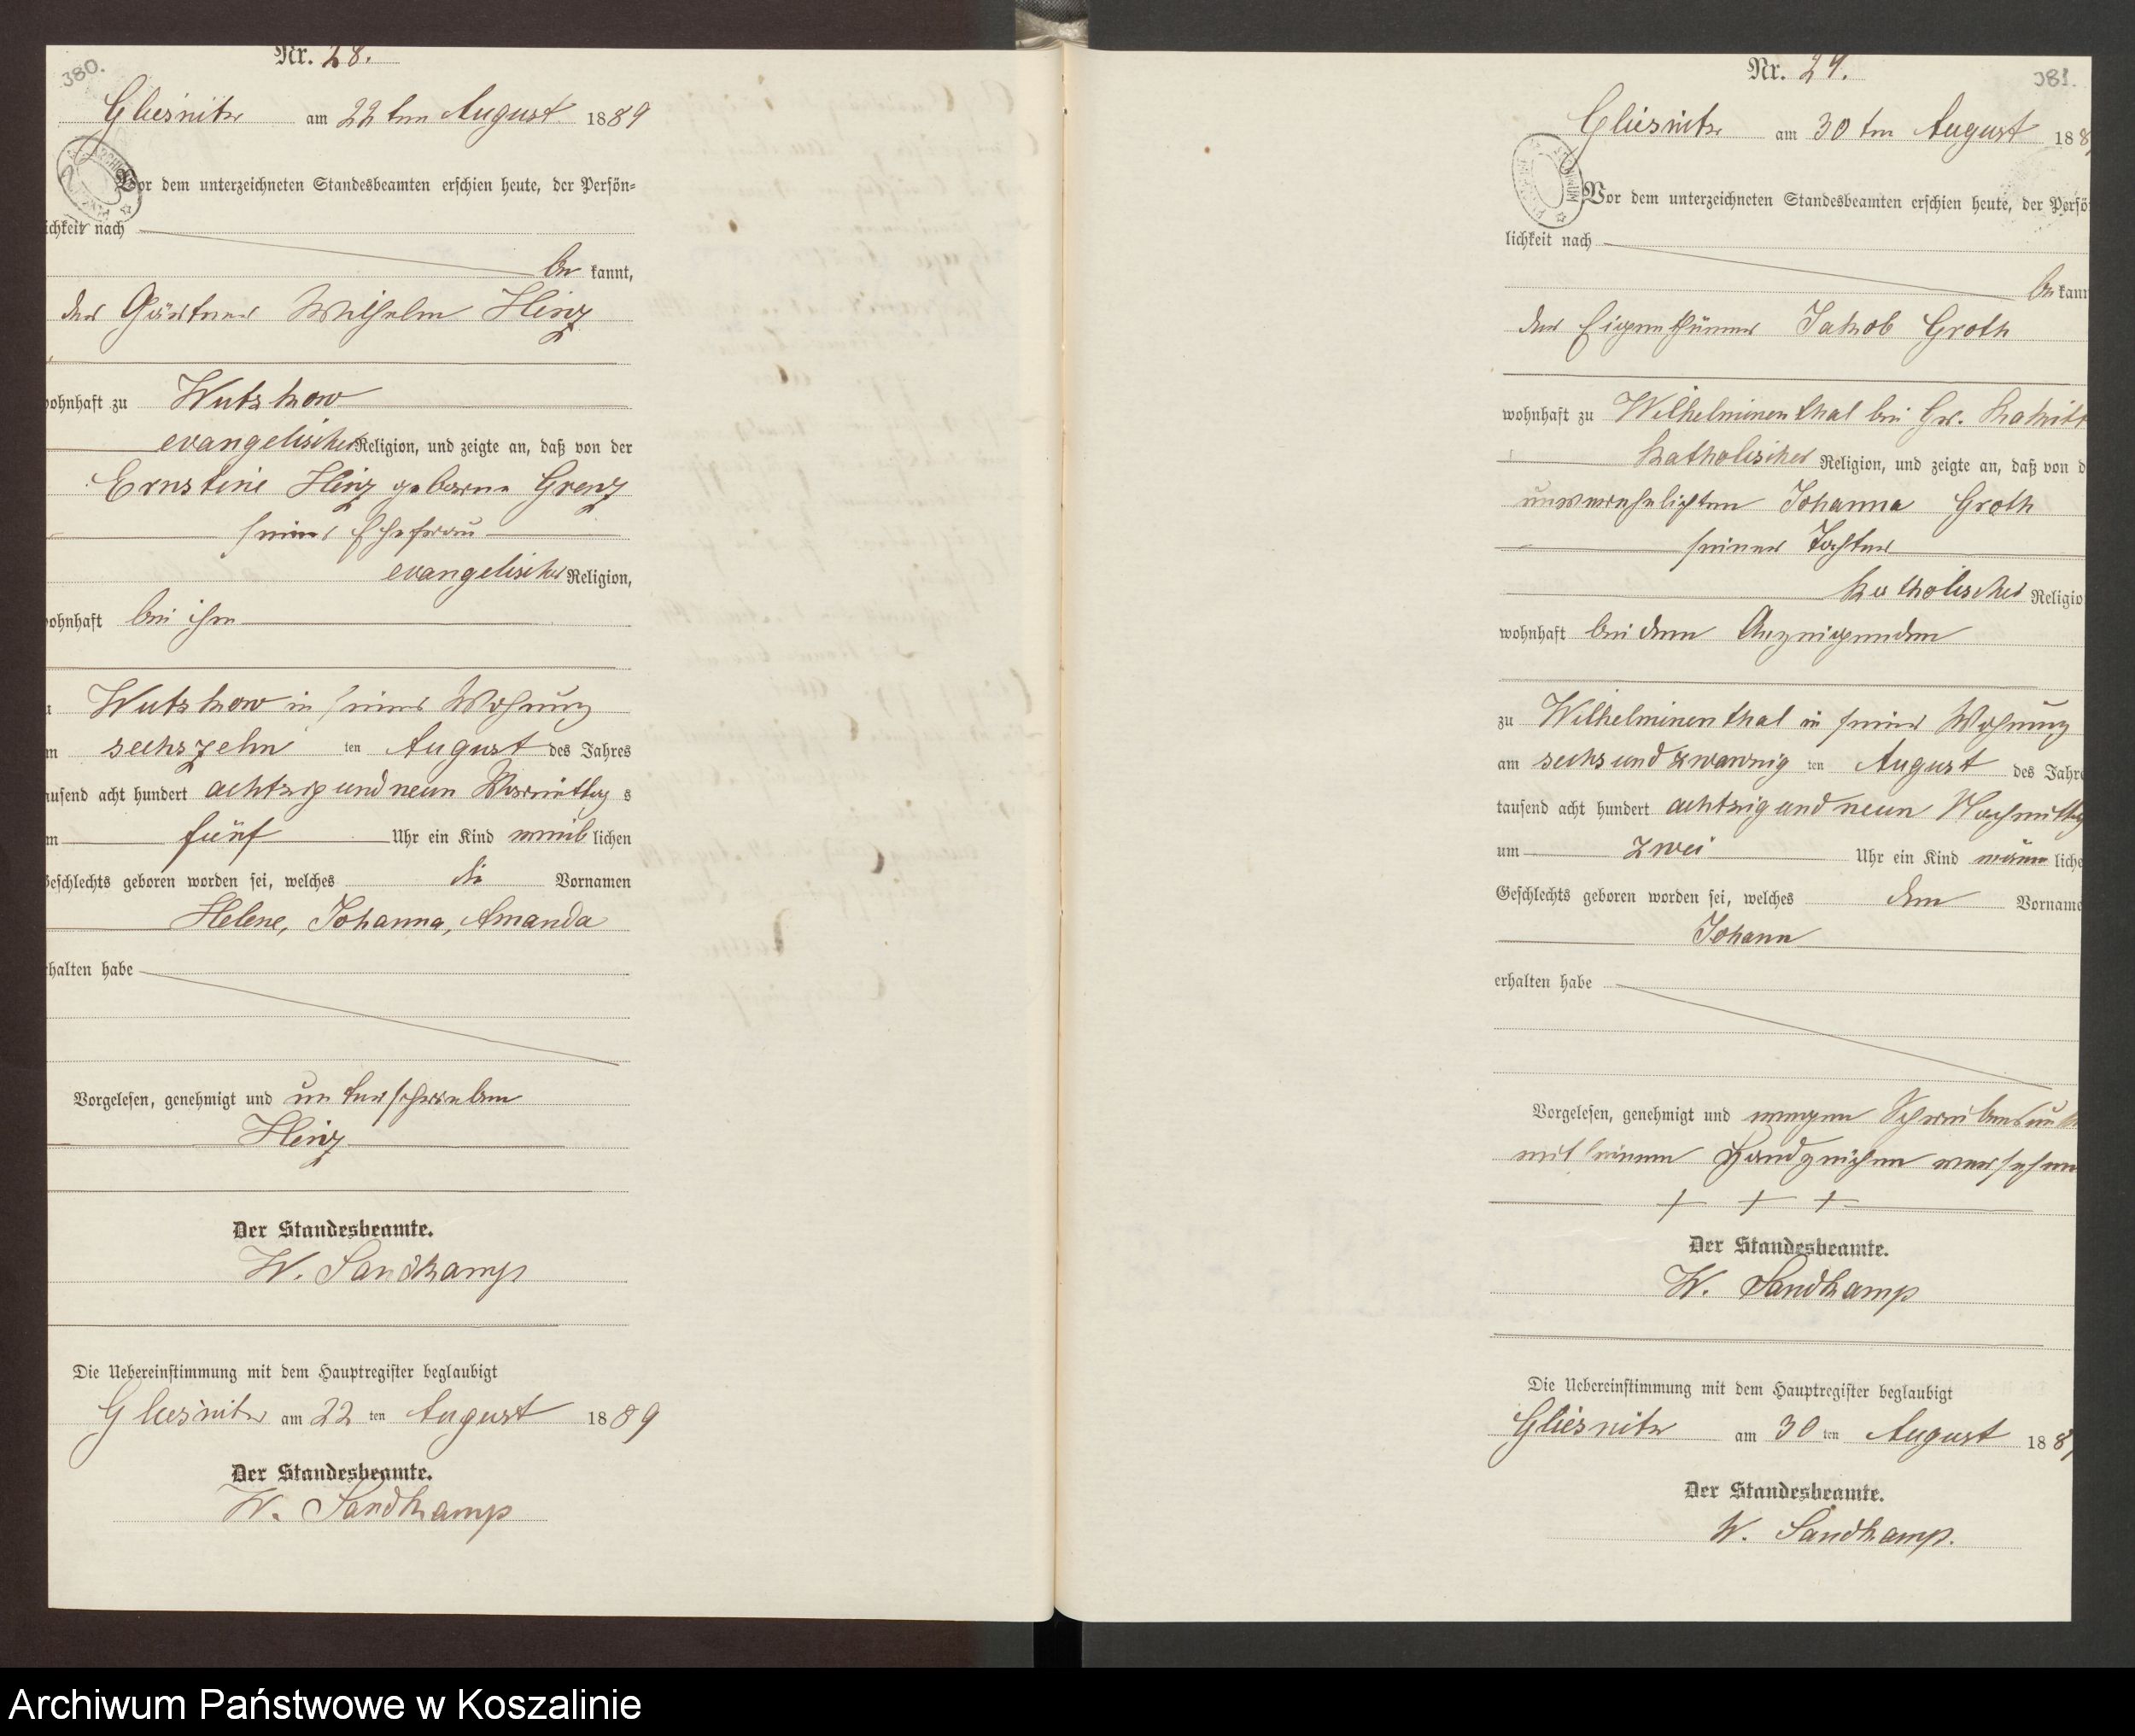 380.
Nr. 28.
Gliesnitz am 22 ten August 1889
Vor dem unterzeichneten Standesbeamten erschien heute, der Persön=
lichkeit nach
be kannt,
der Gärtner Wilhelm Hinz
wohnhaft zu Wutzkow
evangelischer Religion, und zeigte an, daß von der
Ernstine Hinz geborne Grenz
seiner Ehefrau
evangelischer Religion,
wohnhaft bei ihm
zu Wutzkow in seiner Wohnung
am sechszehn ten August des Jahres
tausend acht hundert achtzig und neun Vormittag s
um fünf Uhr ein Kind weib lichen
Geschlechts geboren worden sei, welches die Vornamen
Helene, Johanna, Amanda
erhalten habe
Vorgelesen, genehmigt und unterschrieben
Hinz
Der Standesbeamte.
W. Sandkamp
Die Uebereinstimmung mit dem Hauptregister beglaubigt
Gliesnitz am 22 ten August 1889
Der Standesbeamte.
W. Sandkamp
381.
Nr. 29.
Gliesnitz am 30 ten August 188
Vor dem unterzeichneten Standesbeamten erschien heute, der Persö
lichkeit nach
be kann
der Eigenthümer Jakob Groth
wohnhaft zu Wilhelminenthal bei Gr.
katholischer Religion, und zeigte an, daß von d
unverehelichten Johanna Groth
seiner Tochter
katholischer Religio
wohnhaft bei dem Anzeigenden
zu Wilhelminenthal in seiner Wohnung
am sechsundzwanzig ten August des Jahre
tausend acht hundert achtzig und neun Nachmittag
um zwei Uhr ein Kind männ liche
Geschlechts geboren worden sei, welches den Vorname
Johann
erhalten habe
Vorgelesen, genehmigt und wegen Schreibensun
mit seinem Handzeichen versehen
+ + +
Der Standesbeamte.
W. Sandkamp
Die Uebereinstimmung mit dem Hauptregister beglaubigt
Gliesnitz am 30 ten August 188
Der Standesbeamte.
W. Sandkamp.
Archiwum Państwowe w Koszalinie